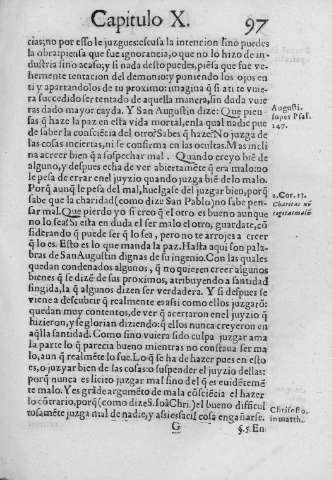 Capitulo X. 97
cias; no por esso le juzgues: escusa la intencion sino puedes
la obra: piensa que fue ignorancia, o que no lo hizo de in-
dustria sino acaso; y si nada desto puedes, piẽsa que fue ve-
hemente tentacion del demonio: y puniendo los ojos en
ti y apartandolos de tu proximo: imagina q̃ si ati te vuie-
ra succedido ser tentado de aquella manera, sin duda vuie
ras dado mayor cayda. Y San Augustin dize: Que pien-
sas q̃ haze la paz en esta vida mortal, en la qual nadie pue
de saber la consciẽcia del otro? Sabes q̃ haze? No juzga de
las cosas inciertas, ni se confirma en las ocultas. Mas incli
na a creer bien q̃ a sospechar mal. Quando creyo biẽ de
alguno, y despues echa de ver abiertamẽte q̃ era malo: no
le pesa de errar enel juyzio quando juzga biẽ delo malo.
Porq̃ aunq̃ le pesa del mal, huelgase del juzgar bien, porq̃
sabe que la charidad (como dize San Pablo) no sabe pen-
sar mal. Que pierdo yo si creo q̃ el otro es bueno aunque
no lo sea? Si esta en duda el ser malo el otro, guardate, cõ
siderando q̃ puede ser q̃ lo sea, pero no te arrojes a creer
q̃ lo es. Esto es lo que manda la paz. Hasta aqui son pala-
bras de San Augustin dignas de su ingenio. Con las quales
quedan condenados algunos, q̃ no quieren creer algunos
bienes q̃ se dizẽ de sus proximos, atribuyendo a santidad
fingida, la q̃ algunos dizen ser verdadera. Y si despues se
viene a descubrir q̃ realmente era assi como ellos juzgarõ:
quedan muy contentos, de ver q̃ acertaron en el juyzio q̃
hizieron, y se glorian diziendo: q̃ ellos nunca creyeron en
aq̃lla santidad. Como sino vuiera sido culpa juzgar a ma
la parte lo q̃ parecia bueno mientras no constaua ser ma
lo, aun q̃ realmẽte lo fue. Lo q̃ se ha de hazer pues en esto
es, o juzyar bien de las cosas: o suspender el juyzio dellas:
porq̃ nunca es licito juzgar mal sino del q̃ es euidẽtemẽ
te malo. Y es grãde argumẽto de mala cõsciẽcia el hazer
lo cõtrario, porq̃ (como dize S. Ioã Chri.) el bueno dificul
tosamẽte juzga mal de nadie, y assi es facil cosa engañarse.
G §.5. En
Augusti.
super Psal.
147.
1. Cor. 13.
Charitas nõ
cogitat malũ
Chrisosto.
in matth.